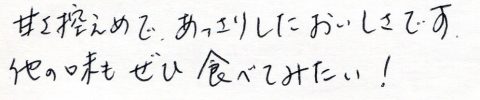 甘さ控えめで、あっさりしたおいしさです。
他の味もぜひ食べてみたい!